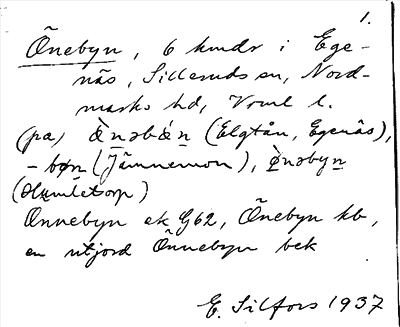 1.
Õnebyn, 6 kmdr i Ege-
näs, Silleruds sn, Nord-
marks hd, Vrml l.
(på) ὲnəbén (Elgtån, Egenäs),
-bøn (Jämnemon), ø̀nəbyn
(Humletorp)
Onnebyn ek G62, Õnebyn kb,
en utjord Õnnebyn bek
E. Silfors 1937